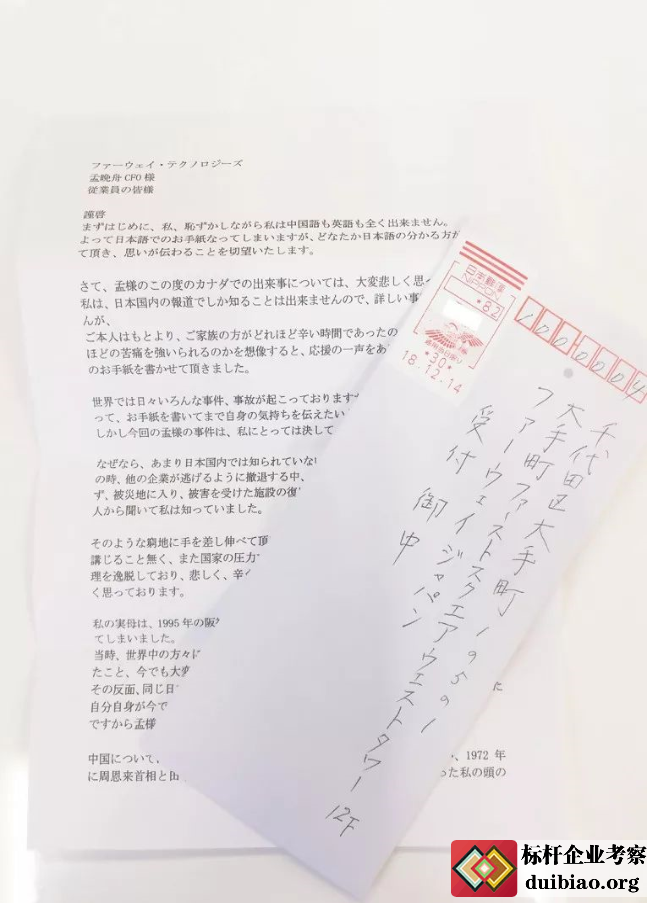 ファーウェイ・テクノロジーズ
孟晩舟 CFO 様
従業員の皆様
謹啓
まずはじめに、私、恥ずかしながら私は中国語も英語も全く出来ません。
よって日本語でのお手紙なってしまいますが、どなたか日本語の分かる方が
て頂き、思いが伝わることを切望いたします。
さて、孟様のこの度のカナダでの出来事については、大変悲しく思
私は、日本国内の報道でしか知ることは出来ませんので、詳しい事
んが、
ご本人はもとより、ご家族の方がどれほど辛い時間であったの
ほどの苦痛を強いられるのかを想像すると、応援の一声をあ
のお手紙を書かせて頂きました。
世界では日々いろんな事件、事故が起こっております
って、お手紙を書いてまで自身の気持ちを伝えたい
しかし今回の孟様の事件は、私にとっては決して
なぜなら、あまり日本国内では知られていな
の時、他の企業が逃げるように撤退する中、
ず、被災地に入り、被害を受けた施設の復
人から聞いて私は知っていました。
そのような窮地に手を差し伸べて頂
講じること無く、また国家の圧力
理を逸脱しており、悲しく、辛
く思っております。
私の実母は、1995 年の阪
てしまいました。
当時、世界中の方々に
たこと、今でも大変
その反面、同じ日
自分自身が今で
ですから孟様
中国について、
、1972 年
に周恩来首相と田
った私の頭の
日本郵便
NIPPON
*82
*30*
18.12.14
1000004
千代田区大手町1-5-1
大手町ファーストスクエアウエストタワー12F
ファーウェイジャパン
受付 御中
标杆企业考察
duibiao.org